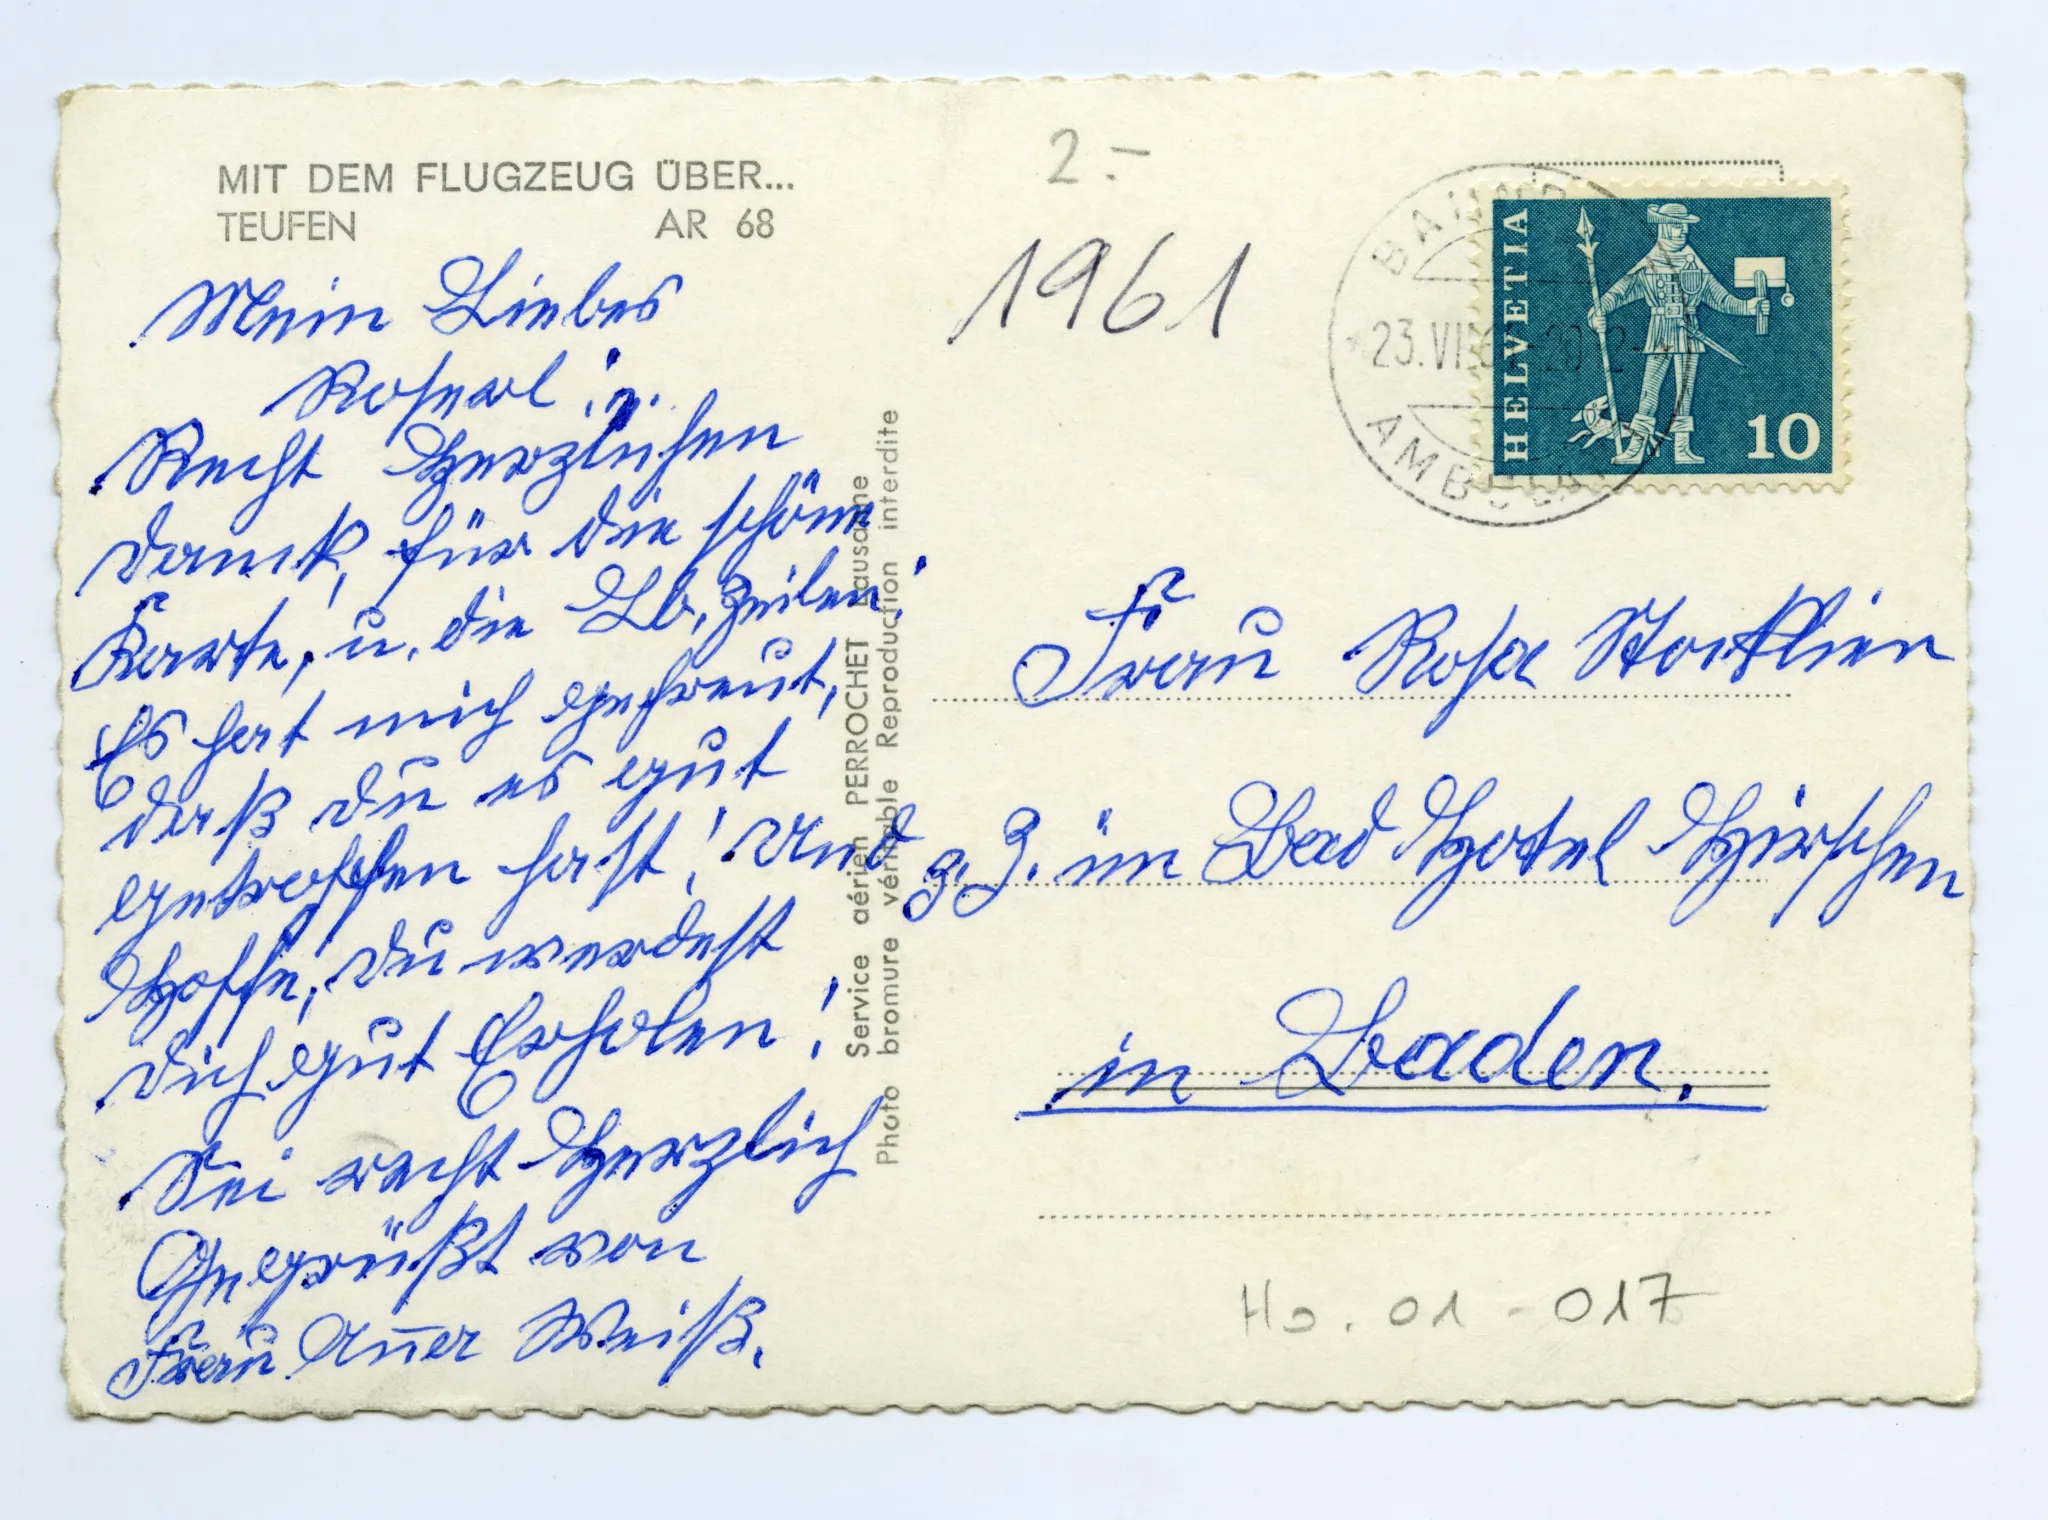 MIT DEM FLUGZEUG ÜBER...
TEUFEN AR 68
Mein Liebes
Roserl!
Recht Herzlichen
Dank, für die schöne
Karte, u. die Lb. Zeilen!
Es hat mich gefreut,
daß du es gut
getroffen hast! Und
Hoffe, du werdest
dich gut Erholen!
Sei recht Herzlich
Gegrüßt von
Frau Auer Weiß.
Service aérien PERROCHET Lausanne
Photo bromure véritable Reproduction interdite
2.-
1961
AMBULANT
23.VII.61-20
HELVETIA
10
Frau Rosa
z. Z. im Bad Hotel Hirschen
in Baden.
Ho. 01-017